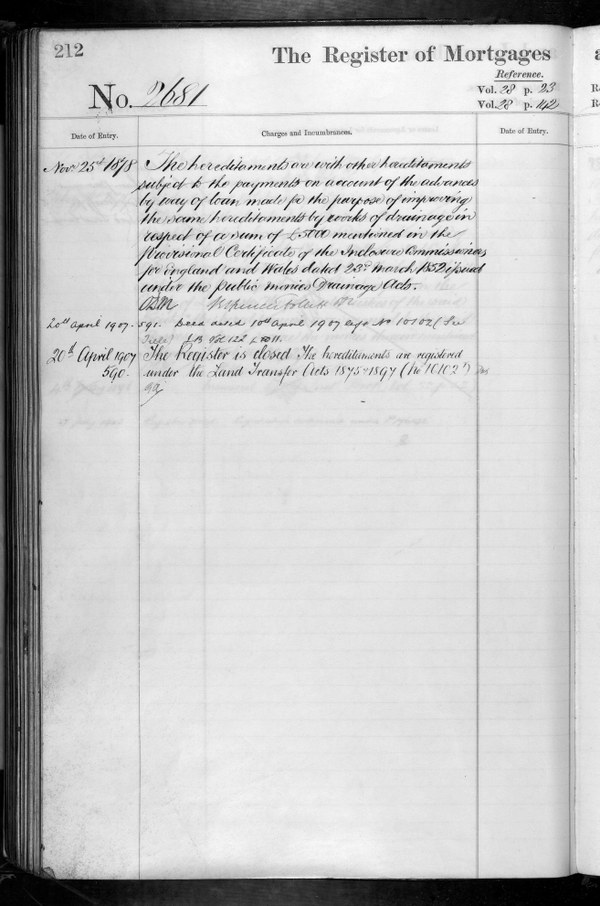 212
The Register of Mortgages
Reference.
No. 2681
Vol. 28 p. 23
Vol. 28 p. 142
Date of Entry.
Charges and Incumbrances.
Date of Entry.
Novr 25th 1878
The hereditaments are with other hereditaments
subject to the payments on account of the advances
by way of loan made for the purpose of improving
the same hereditaments by works of drainage in
respect of a sum of £5000 mentioned in the
provisional Certificate of the Inclosure Commissioners
for England and Wales dated 23rd March 1852 issued
under the Public monies Drainage Acts.
20th April 1907.
591. Deed dated 10th April 1907 No 10102 (See
Title) LB Vol 122
20th April 1907
The Register is closed The hereditaments are registered
590.
under the Land Transfer Acts 1875 1897 (No 10102)